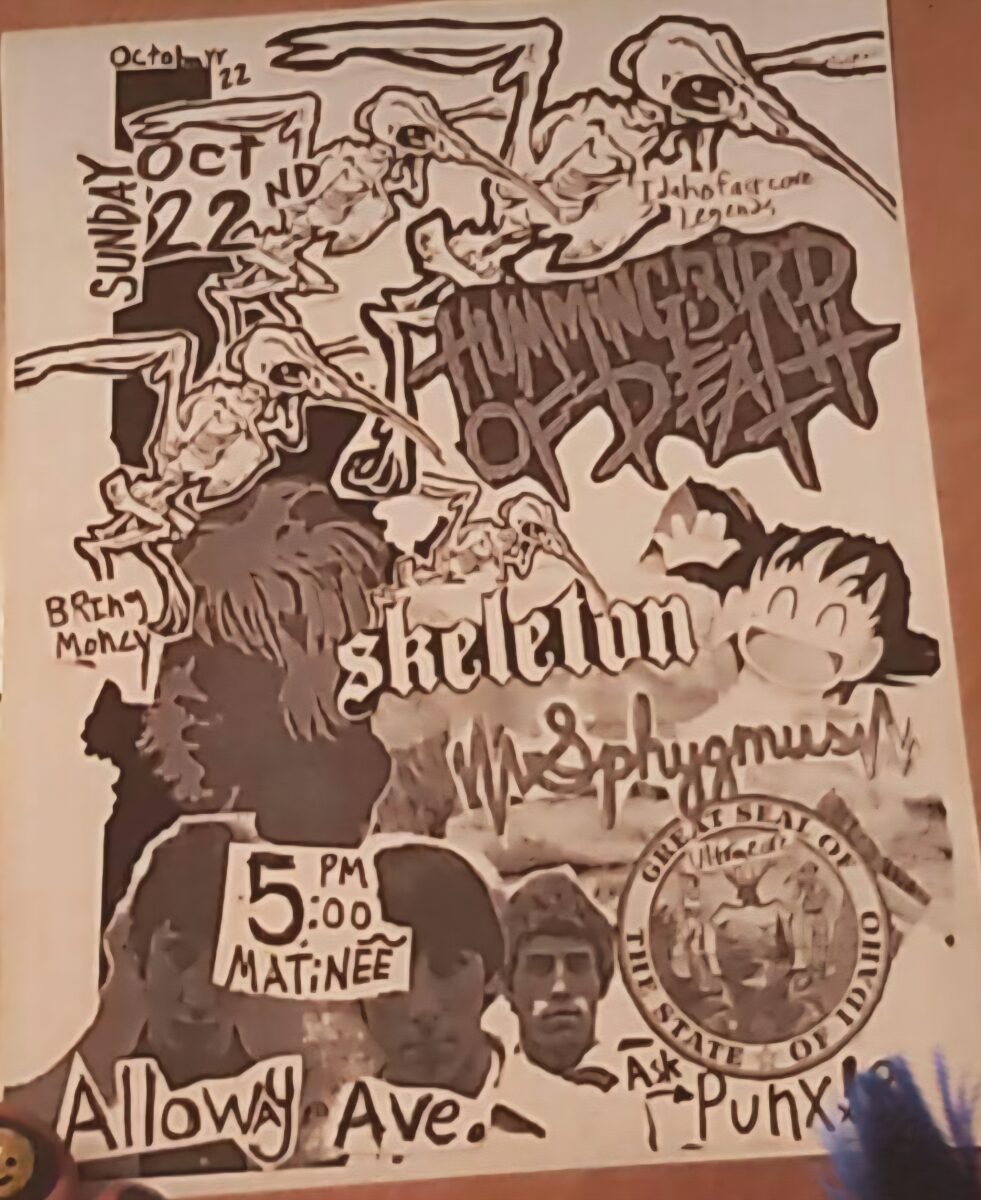 22
SUNDAY
OCT
22ND
Idahofastcore
Legends
HUMMINGBIRD
OF DEATH
BRing
Money
skeleton
Sphygmus
GREAT SEAL OF
THE STATE OF IDAHO
5:00 PM
MATiNEE
Alloway Ave.
Ask
Punx!